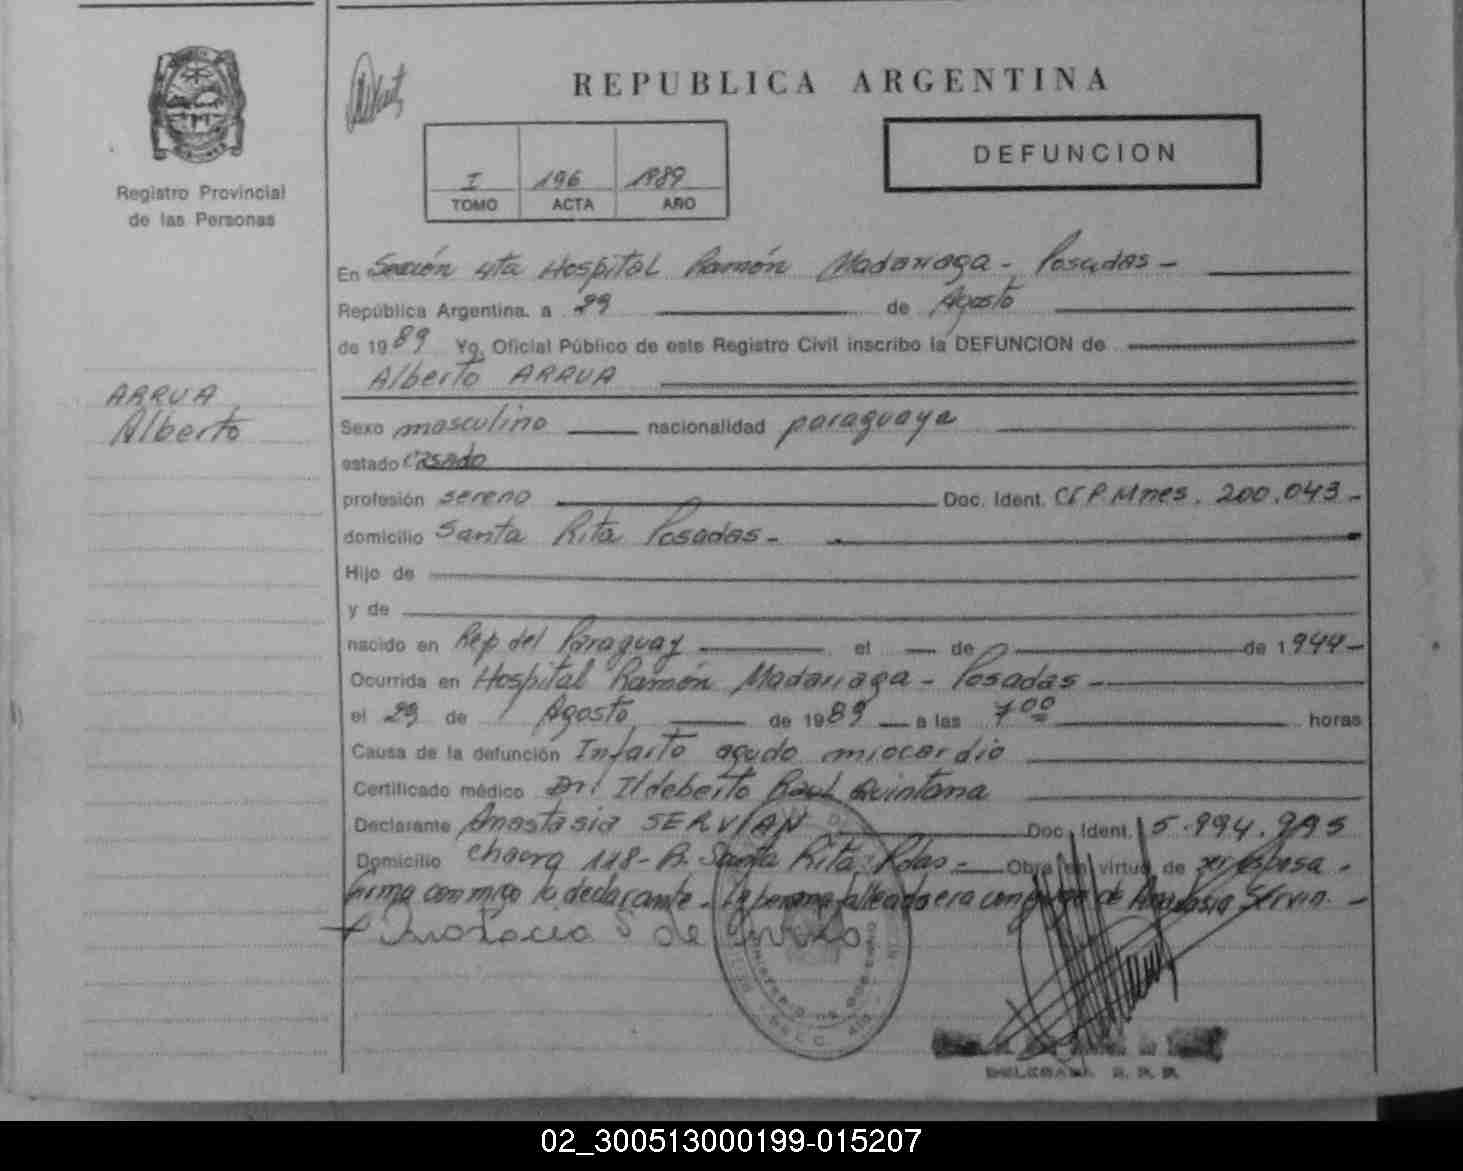 REPUBLICA ARGENTINA
DEFUNCION
Registro Provincial
de las Personas
I 196 1989
TOMO ACTA AÑO
En Sección 4ta Hospital Ramón Madariaga - Posadas -
República Argentina. a 29 de Agosto
de 1989 Yo, Oficial Público de este Registro Civil inscribo la DEFUNCION de
Alberto ARRUA
ARRUA
Alberto
Sexo masculino nacionalidad paraguaya
estado casado
profesión sereno Doc. Ident. CI P. Mnes. 200.043 -
domicilio Santa Rita Posadas -
Hijo de
y de
nacido en Rep del Paraguay el de de 1944 -
Ocurrida en Hospital Ramón Madariaga - Posadas -
el 29 de Agosto de 1989 a las 7 00 horas
Causa de la defunción Infarto agudo miocardio
Certificado médico Dr. Ildeberto Raul Quintana
Declarante Anastasia SERVIAN Doc. Ident. 5.994.995
Domicilio chacra 118 - B. Santa Rita Pdas - Obra en virtud de ser esposa -
firma conmigo la declarante - La persona fallecida era conyuge de Anastasia Servin. -
S de
DELEGADA R. P. P.
02_300513000199-015207